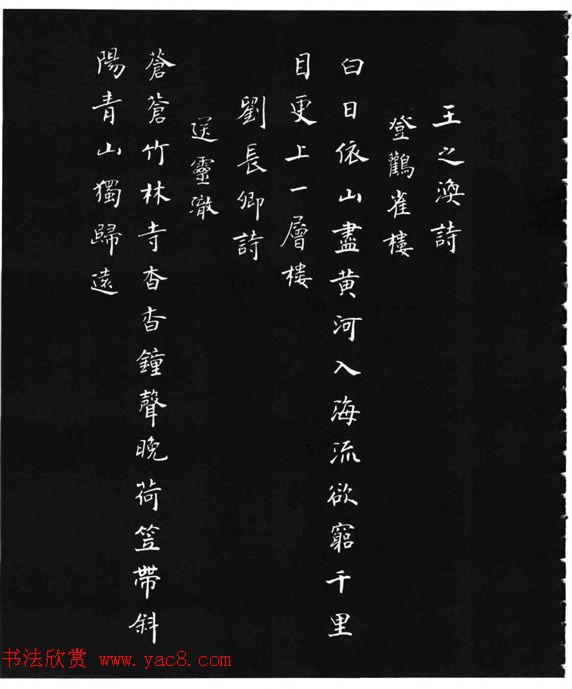 王之渙詩
登鸛雀樓
白日依山盡黄河入海流欲窮千里
目更上一層楼
劉長卿詩
送靈澈
蒼蒼竹林寺杳杳鐘聲晚荷笠帶斜
陽青山獨歸遠
书法欣赏 www.yac8.com